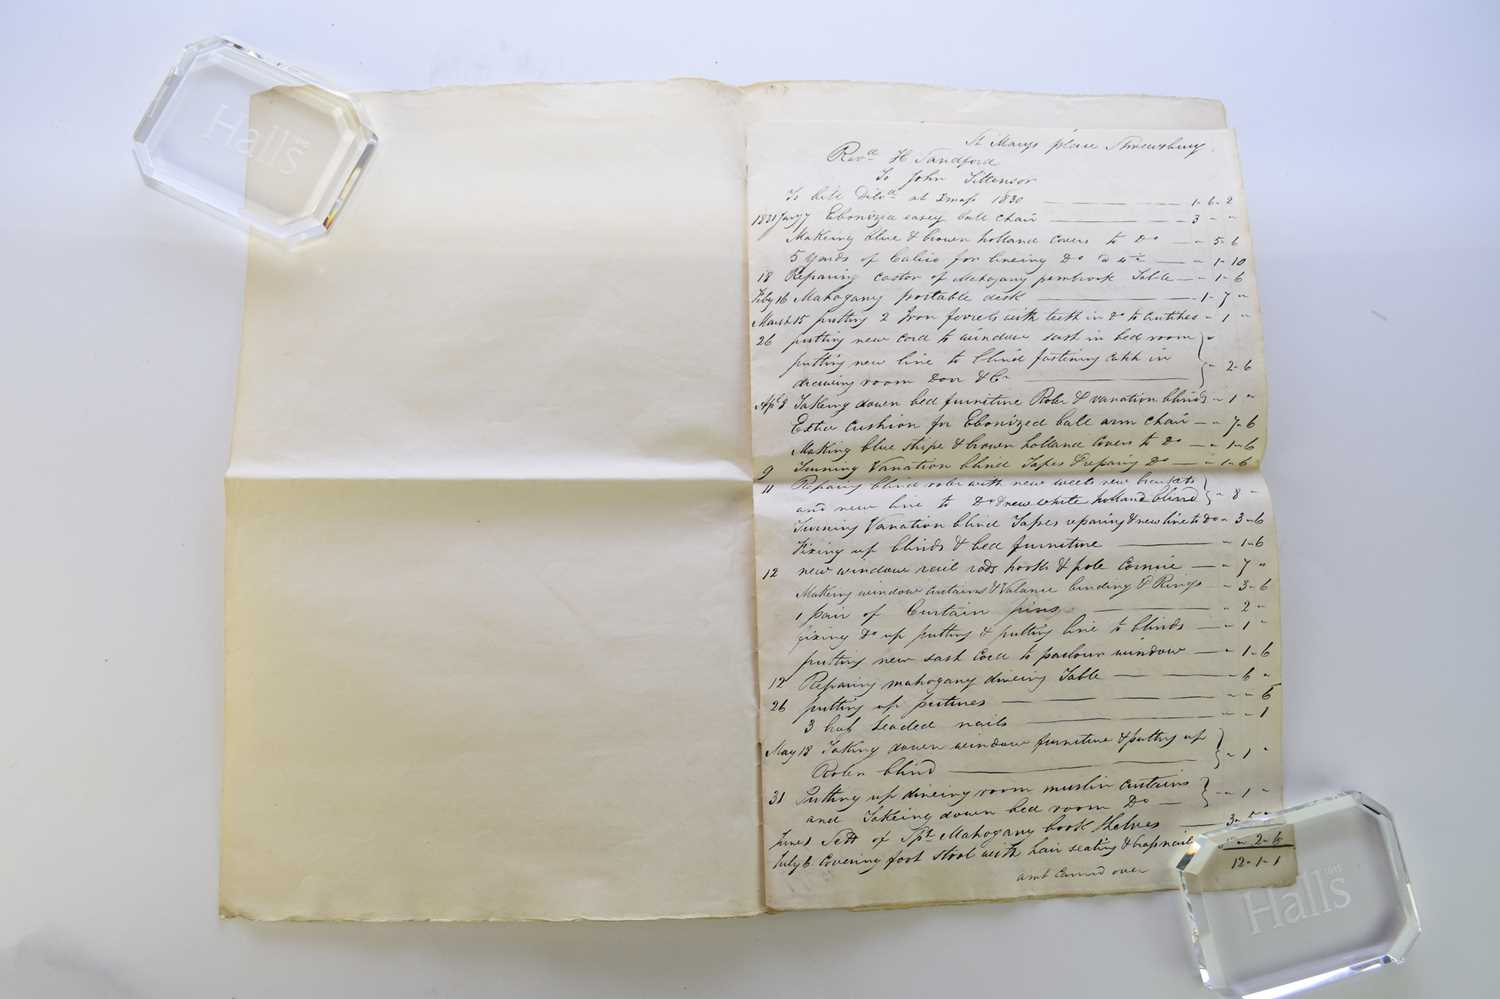 Halls
St Marys place Shrewsbury
Revd H Sandford
To John Tittensor
To bill Delvd at Xmas 1830 1-6-2
1831 Jany 7 Ebonized easey bate chair 3 " "
Makeing blue & brown holland covers to Do " 5-6
5 yards of Calico for lineing Do " 1-10
18 Repairing castor of Mahogany pembrook Table " 1-6
Feby 16 Mahogany portable desk 1-7 "
March 15 putting 2 Iron ferrels with teeth in Do to crutches " 1 "
26 putting new cord to window sash in bed room
putting new line to blind fastening catch in
drawing room door &c " 2-6
Apl 8 Takeing down bed furniture Roler & vanation blinds " 1 "
Extra cushion for Ebonized bate arm chair " 7-6
Making blue stripe & brown holland covers to Do " 1-6
9 Turning Vanation blind Tapes & repairing Do " 1-6
11 Repairing blind roler with new
and new line to Do & new white holland blind " 8 "
Turning Vanation blind Tapes repairing & new line to Do " 3-6
Fixing up blinds & bed furniture " 1-6
12 new window rail rods hooks & pole Cornice " 7 "
Making window curtains & Valance binding & Rings " 3-6
1 pair of Curtain pins " 2 "
fixing Do up putting & putting line to blinds " 1 "
putting new sash Cord to parlour window " 1-6
12 Repairing mahogany dineing Table " 6 "
26 putting up pictures " " 6
3 headed nails " " 1
May 18 Taking down window furniture & putting up
Roler blind " 1 "
31 Putting up dineing room muslin curtains
and Takeing down bed room Do " 1 "
June 1 Sett of Mahogany book shelves 3-5 "
July 6 Covering foot stool with hair seating & brass nails " 2-6
12-1-1
amt carried over
Halls
1845